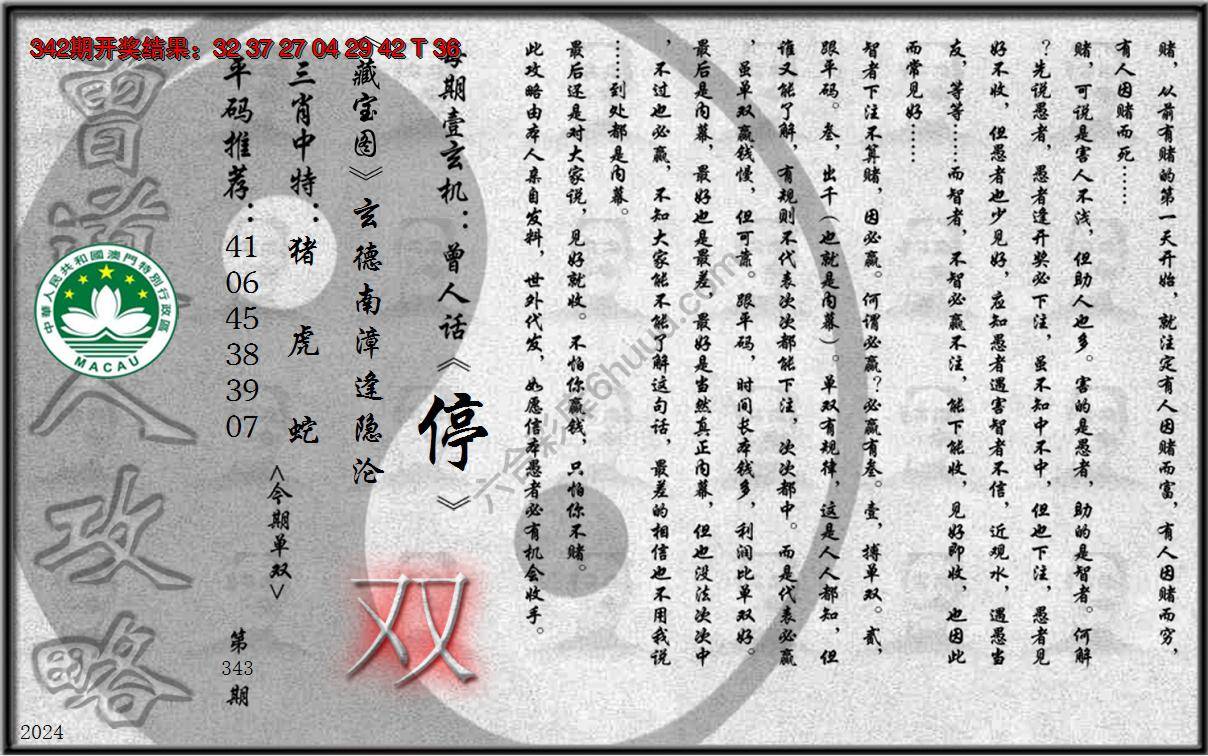 342期开奖结果：32 37 27 04 29 42 T 36
赌，从前有赌的第一天开始，就注定有人因赌而富，有人因赌而穷，
有人因赌而死……
赌，可说是害人不浅，但助人也多。害的是愚者，助的是智者。何解
？先说愚者，愚者逢开奖必下注，虽不知中不中，但也下注，愚者见
好不收，但愚者也少见好，应知愚者遇害智者不信，近观水，遇愚当
友，等等……而智者，不智必赢不注，能下能收，见好即收，也因此
而常见好……
智者下注不算赌，因必赢。何谓必赢？必赢有叁。壹，搏单双。贰，
跟平码。叁，出千（也就是内幕）。单双有规律，这是人人都知，但
谁又能了解，有规则不代表次次都能下注，次次都中。而是代表必赢
，虽单双赢钱慢，但可靠。跟平码，时间长本钱多，利润比单双好。
最后是内幕，最好也是最差，最好是当然真正内幕，但也没法次次中
，不过也必赢，不知大家能不能了解这句话，最差的相信也不用我说
……到处都是内幕。
最后还是对大家说，见好就收。不怕你赢钱，只怕你不赌。
此攻略由本人亲自发料，世外代发，如愿信本愚者必有机会收手。
每期壹玄机：曾人话《停》
《藏宝图》玄德南漳逢隐沦
双
三肖中特：猪 虎 蛇
<今期单双>
平码推荐：41 06 45 38 39 07
第343期
曾道人攻略
中華人民共和國澳門特別行政區
MACAU
2024